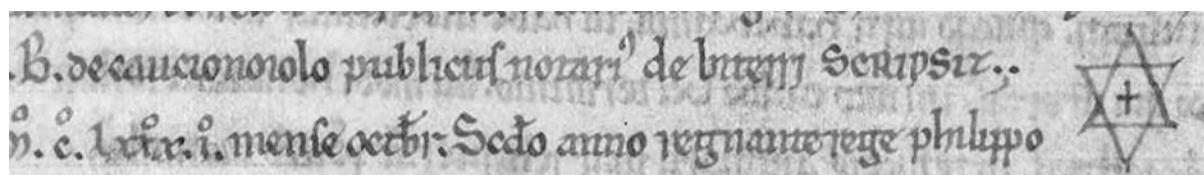 .B. de caucionoiolo publicus notari⁹ de biterrj scripsit..
m̊. c̊. lxx̊x. i̊. mense octbr. Scdo anno regnante rege philippo